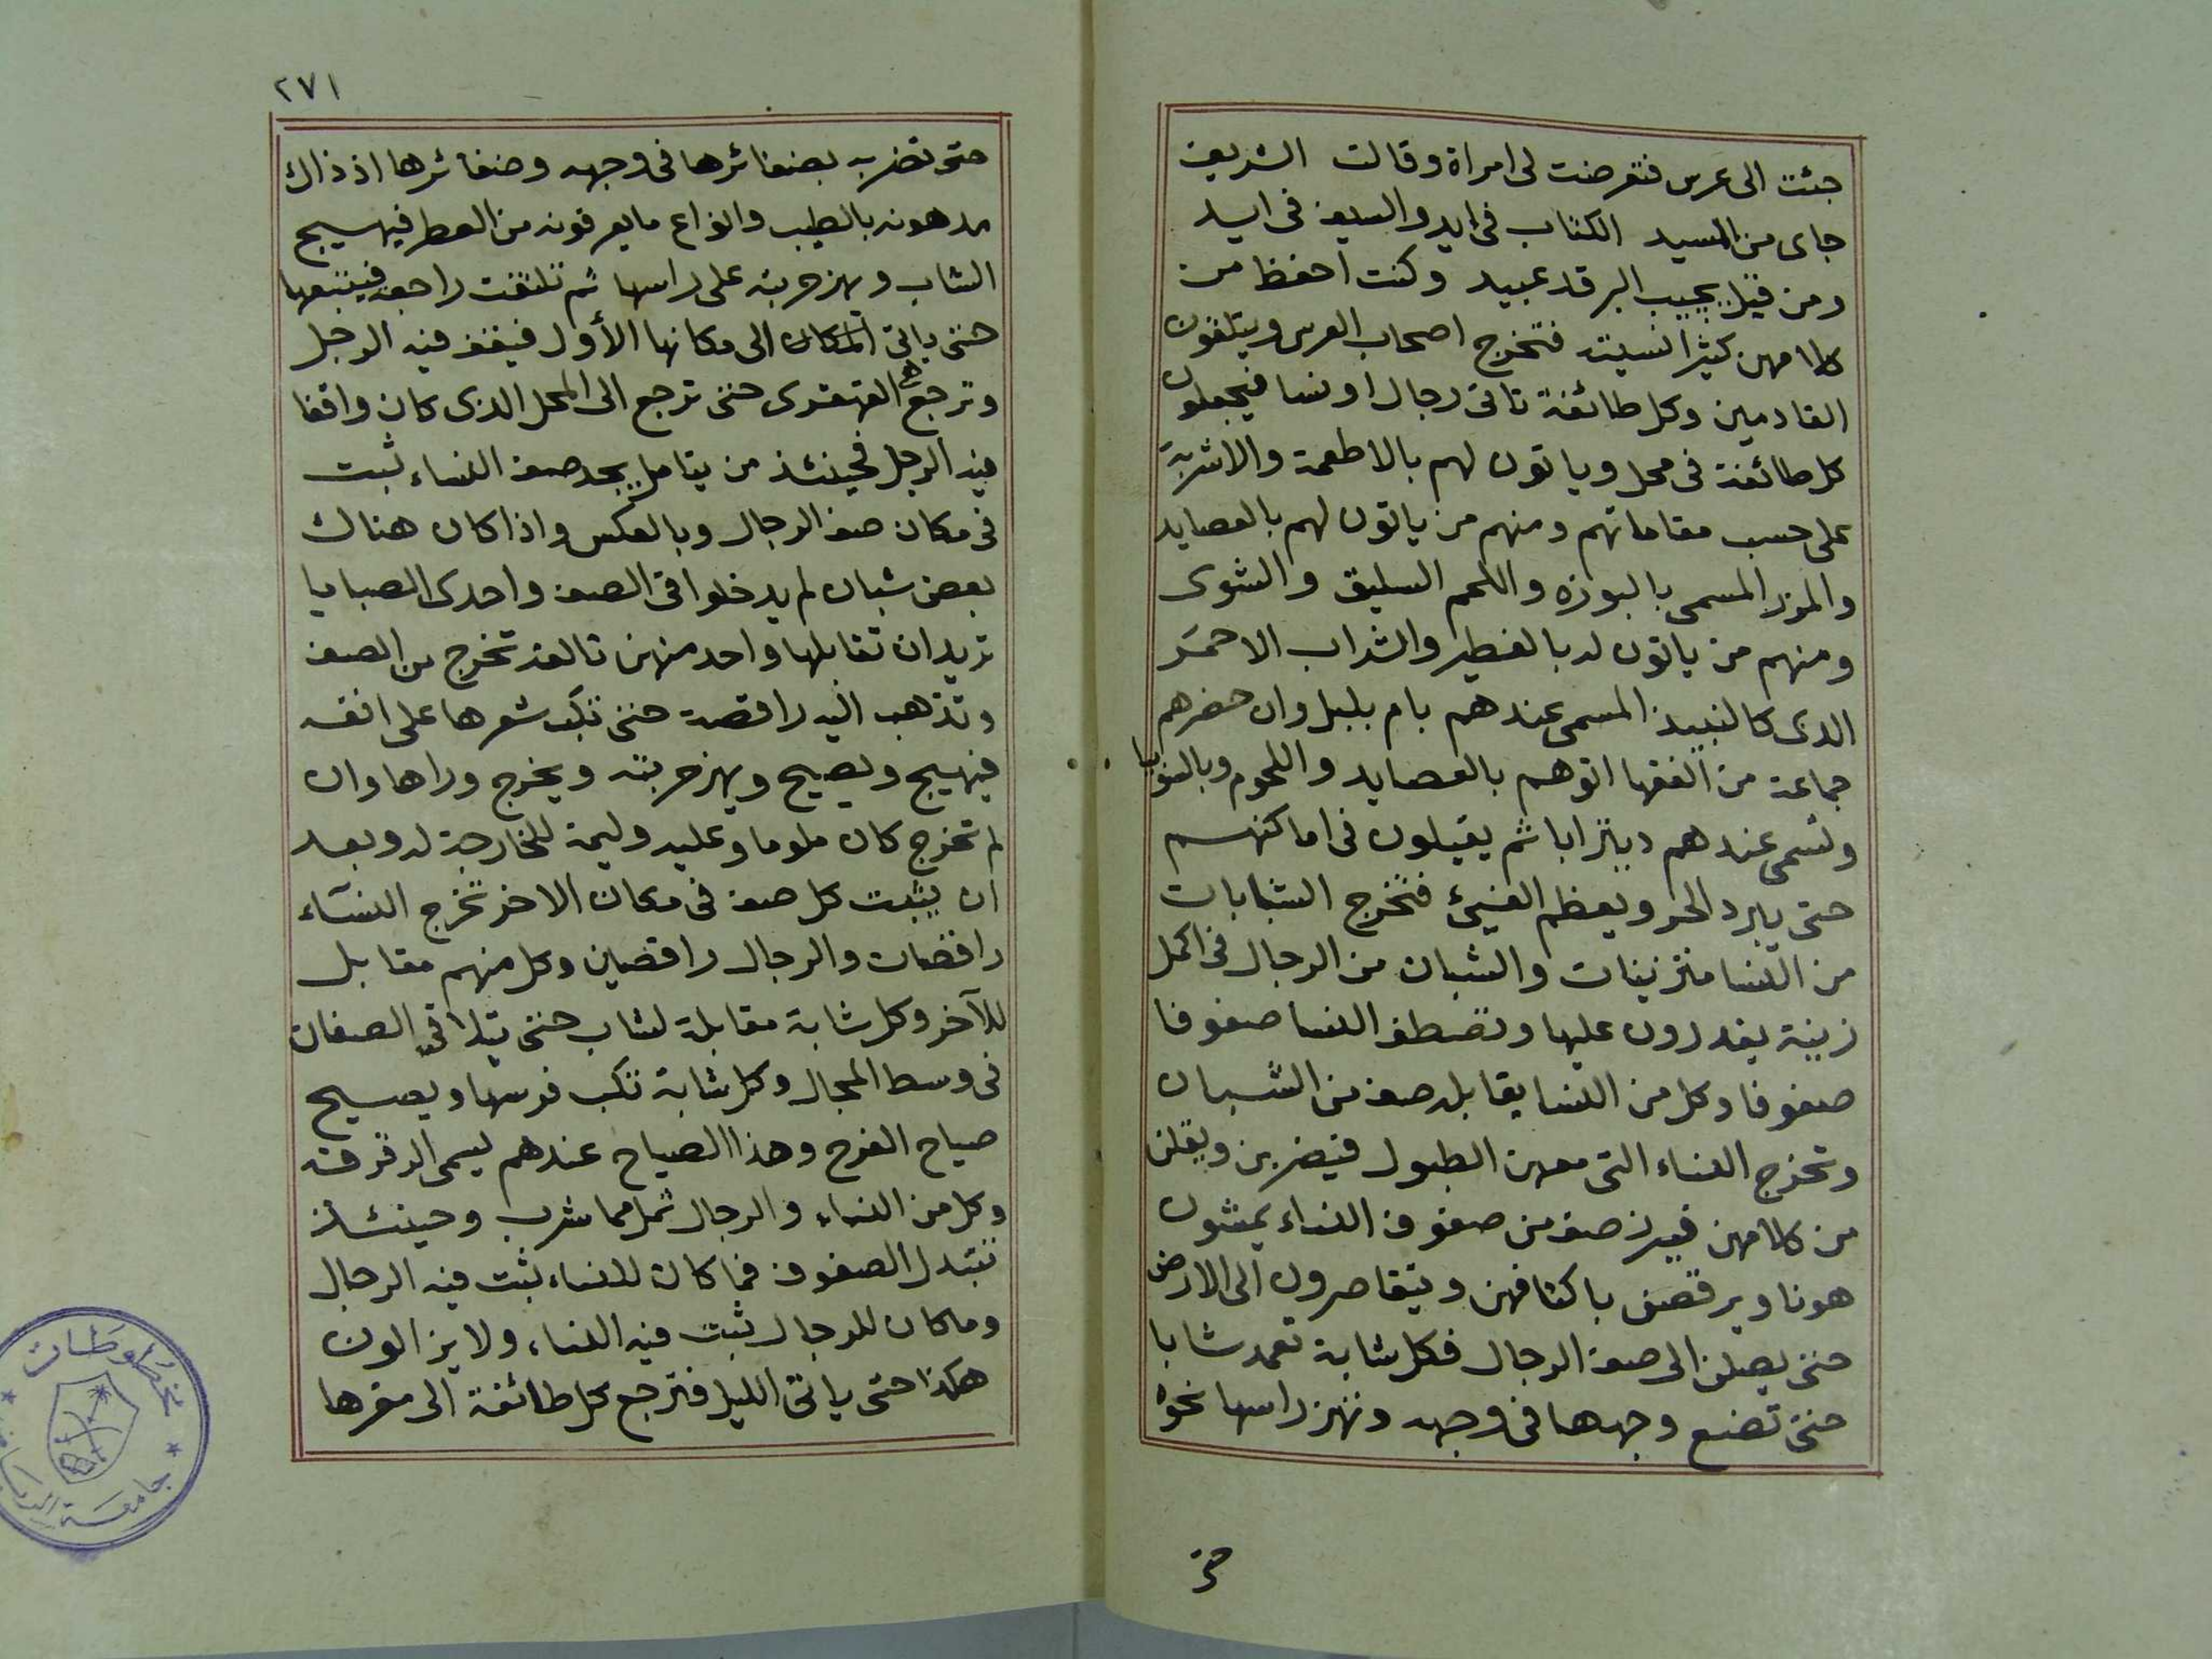 جئت الى عرس فتعرضت لى امراة وقالت الشريف
جاى من المسيد الكتاب فى ايد والسيف فى ايد
ومن قبل يجيب البرقد عبيد وكنت احفظ من
كلامهن كثيرا نسيته فتخرج اصحاب العرس ويتلقون
القادمين وكل طائفة تاتى رجالا او نسا فيجعلون
كل طائفة فى محل وياتون لهم بالاطعمة والاشربة
على حسب مقاماتهم ومنهم من ياتون لهم بالعصايد
والمزر المسمى بالبوزه واللحم السليق والشوى
ومنهم من ياتون له بالفطير والشراب الاحمر
الذى كالنبيذ المسمى عندهم بام بلبل وان حضرهم
جماعة من الفقها اتوهم بالعصايد واللحوم وبالسوبيا
وتسمى عندهم ديتزابا ثم يقيلون فى اماكنهم
حتى يبرد الحر ويعظم الفيئ فتخرج الشابات
من النسا متزينات والشبان من الرجال فى اكمل
زينة يقدرون عليها وتصطف النسا صفوفا
صفوفا وكل من النسا يقابله صف من الشبان
وتخرج النساء التى معهن الطبول فيضربن ويقلن
من كلامهن فيبرز صف من صفوف النساء يمشون
هونا ويرقصن باكتافهن ويتقاصرون الى الارض
حتى يصلن الى صف الرجال فكل شابة تعمد شابا
حتى تضع وجهها فى وجهه وتهز راسها نحوه
حتى
٢٧١
حتى تضربه بضفائرها فى وجهه وضفائرها اذ ذاك
مدهونه بالطيب وانواع مايعرفونه من العطر فيهيج
الشاب ويهز حربته على راسها ثم تلتفت راجعه فيتبعها
حتى ياتى المكان الى مكانها الأول فيقف فيه الرجل
وترجع هى القهقرى حتى ترجع الى المحل الذى كان واقفا
فيه الرجل فحينئذ من يتامل يجد صف النساء ثبت
فى مكان صف الرجال وبالعكس واذا كان هناك
بعض شبان لم يدخلوا فى الصف واحدى الصبايا
تريد ان تقابلها واحد منهن تالفه تخرج من الصف
وتذهب اليه راقصة حتى تكب شعرها على انفه
فيهيج ويصيح ويهز حربته ويخرج وراها وان
لم تخرج كان ملوما وعليه وليمة للخارجة له وبعد
ان يثبت كل صف فى مكان الاخر تخرج النساء
راقصات والرجال راقصين وكل منهم مقابل
للآخر وكل شابة مقابلة لشاب حتى يتلاقى الصفان
فى وسط المجال وكل شابة تكب فوسها ويصيح
صياح الفرح وهذا الصياح عندهم يسمى الرقرقه
وكل من النساء والرجال ثمل مما شرب وحينئذ
تتبدل الصفوف فما كان للنساء ثبت فيه الرجال
وماكان للرجال ثبت فيه النساء ولا يزالون
هكذا حتى ياتى الليل فترجع كل طائفة الى مقرها
مخطوطات
جامعة الرياض